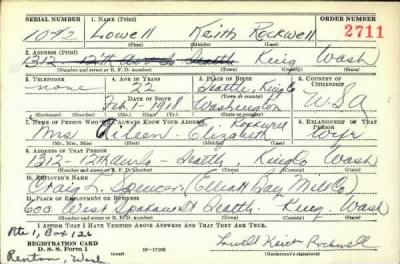 SERIAL NUMBER 1. NAME (Print) ORDER NUMBER
1042 Lowell Keith Rockwell 2711
(First) (Middle) (Last)
2. ADDRESS (Print)
1312 - 12th Ave So Seattle King Wash
(Number and street or R. F. D. number) (Town) (County) (State)
3. TELEPHONE 4. AGE IN YEARS 5. PLACE OF BIRTH 6. COUNTRY OF CITIZENSHIP
none 22 Seattle, King Co U.S.A.
DATE OF BIRTH (Town or county)
Feb 1918 Washington
(Exchange) (Number) (Mo.) (Day) (Yr.) (State or country)
7. NAME OF PERSON WHO WILL ALWAYS KNOW YOUR ADDRESS 8. RELATIONSHIP OF THAT PERSON
Mrs Aileen Elizabeth Rockwell Wife
(Mr., Mrs., Miss) (First) (Middle) (Last)
9. ADDRESS OF THAT PERSON
1312 - 12th Ave So - Seattle King Co Wash
(Number and street or R. F. D. number) (Town) (County) (State)
10. EMPLOYER'S NAME
Craig L. Spencer (Elliott Bay Mill Co)
11. PLACE OF EMPLOYMENT OR BUSINESS
600 West Spokane St Seattle King Wash
(Number and street or R. F. D. number) (Town) (County) (State)
I AFFIRM THAT I HAVE VERIFIED ABOVE ANSWERS AND THAT THEY ARE TRUE.
Rte 1, Box 126
REGISTRATION CARD
D. S. S. Form 1 16-17105 Lowell Keith Rockwell
Renton, Wash